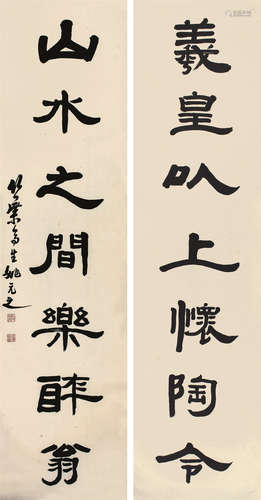 羲皇以上懷陶令
山水之間樂醉翁
姚元之